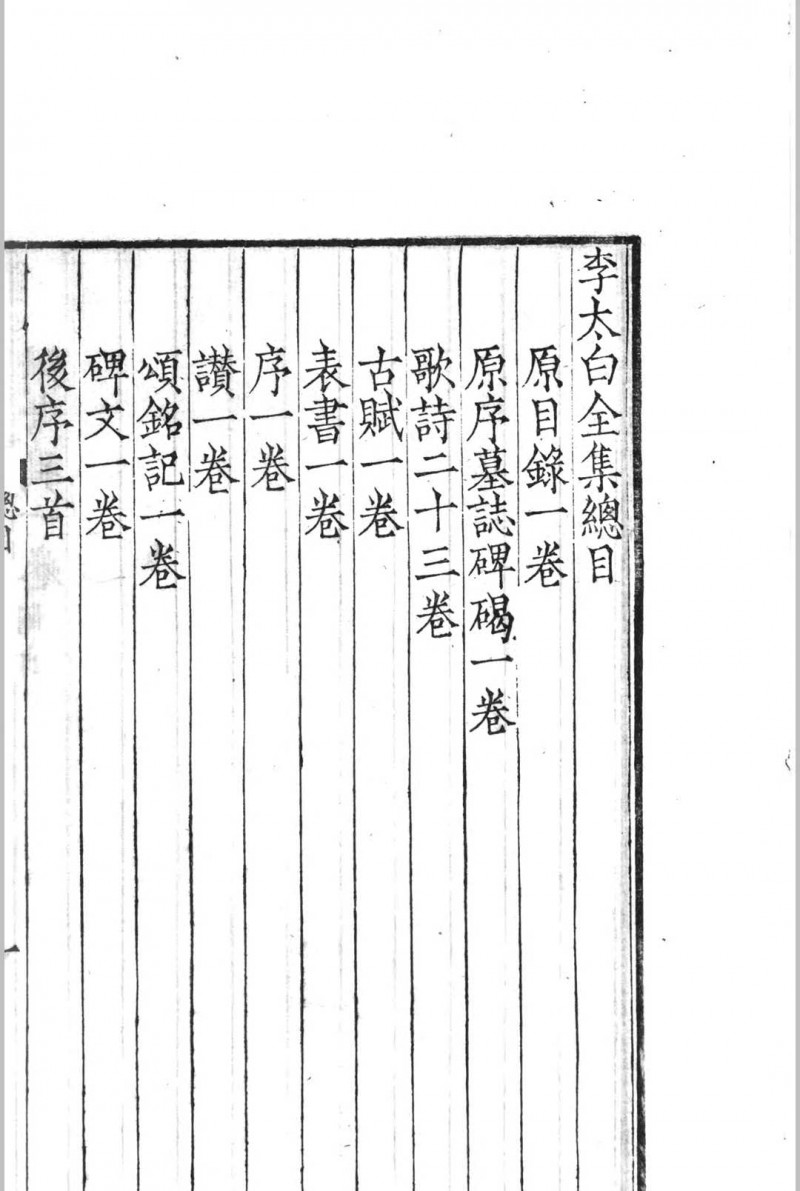 李太白全集總目
原目錄一卷
原序墓誌碑碣一卷
歌詩二十三卷
古賦一卷
表書一卷
序一卷
讃一卷
頌銘記一卷
碑文一卷
後序三首
總目
一